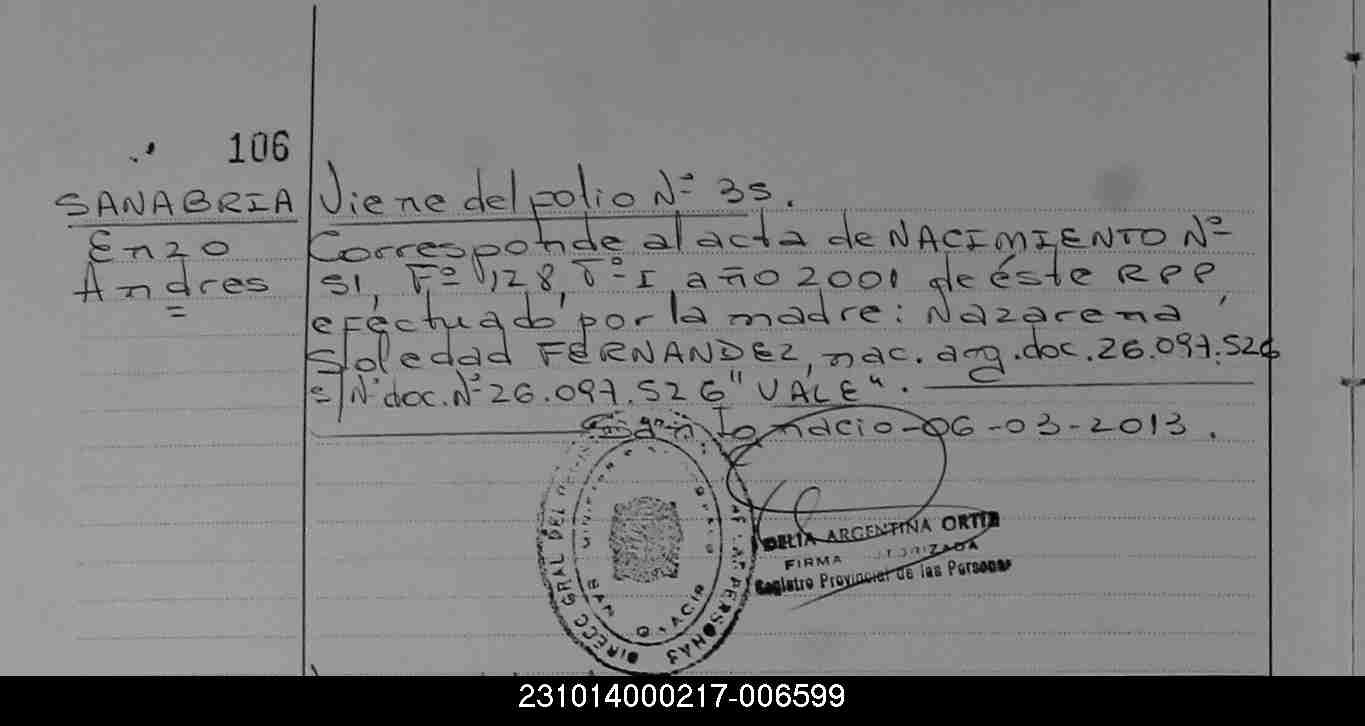 106
SANABRIA
Enzo
Andres
=
Viene del folio Nº 35.
Corresponde al acta de NACIMIENTO Nº
51, Fº 128, Tº I, año 2001 de éste RPP,
efectuado por la madre: Nazarena
Soledad FERNANDEZ, nac. arg. doc. 26.097.526
s/Nº doc. Nº 26.097.526 "VALE".
San Ignacio-06-03-2013.
DIRECC GRAL DEL
PERSONAS
SAN
DELIA ARGENTINA ORTIZ
FIRMA
Registro Provincial de las Personas
231014000217-006599